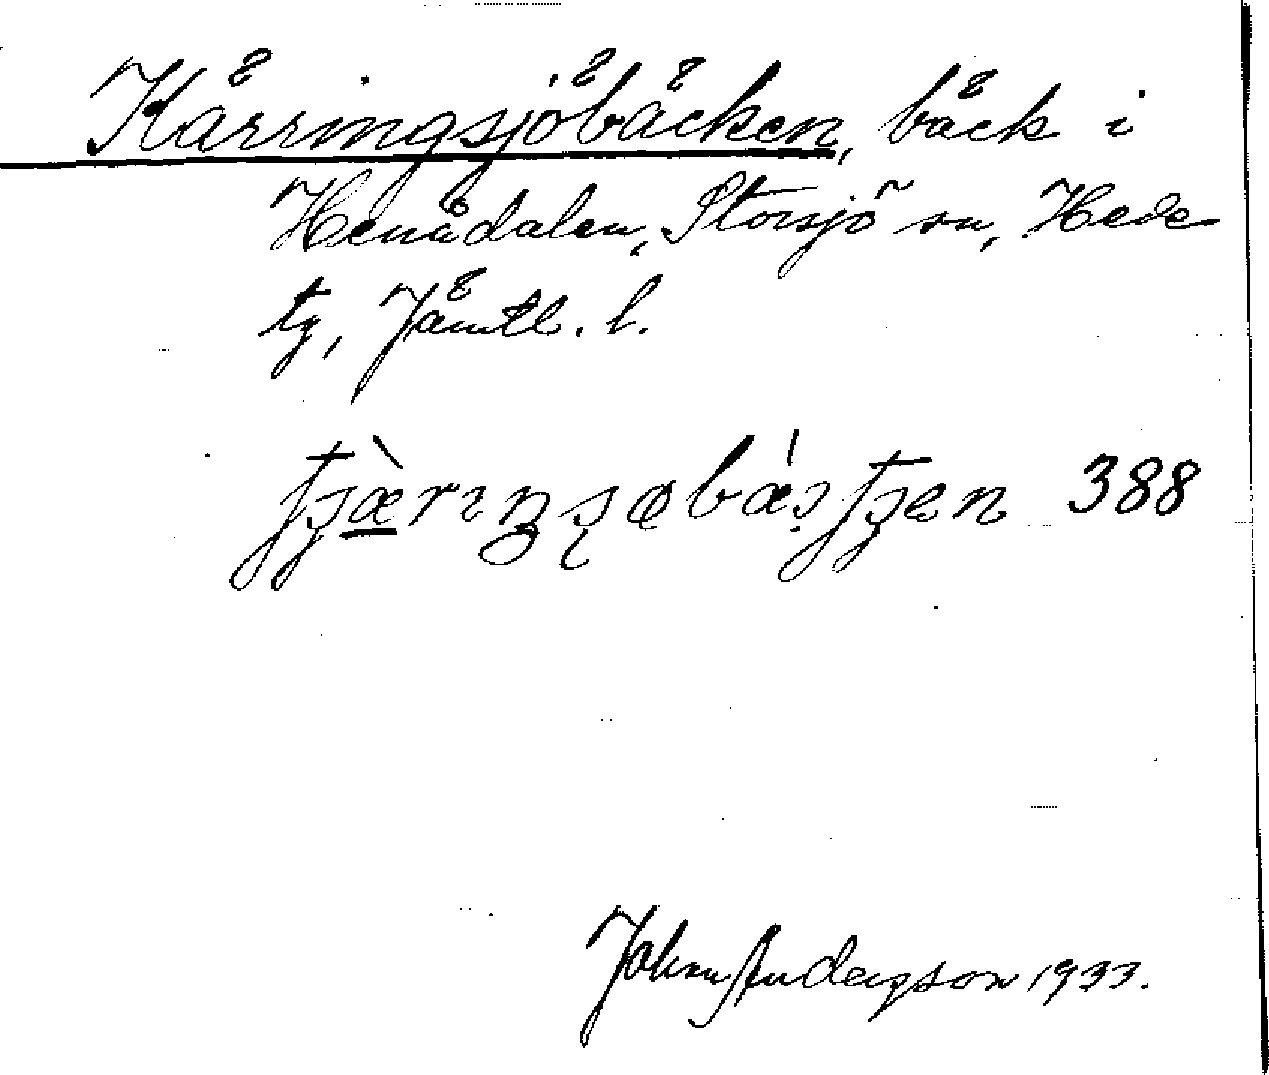 Kärringsjöbäcken, bäck i
Henådalen, Storsjö sn, Hede
tg, Jämtl. l.
388
John Anderson 1933.